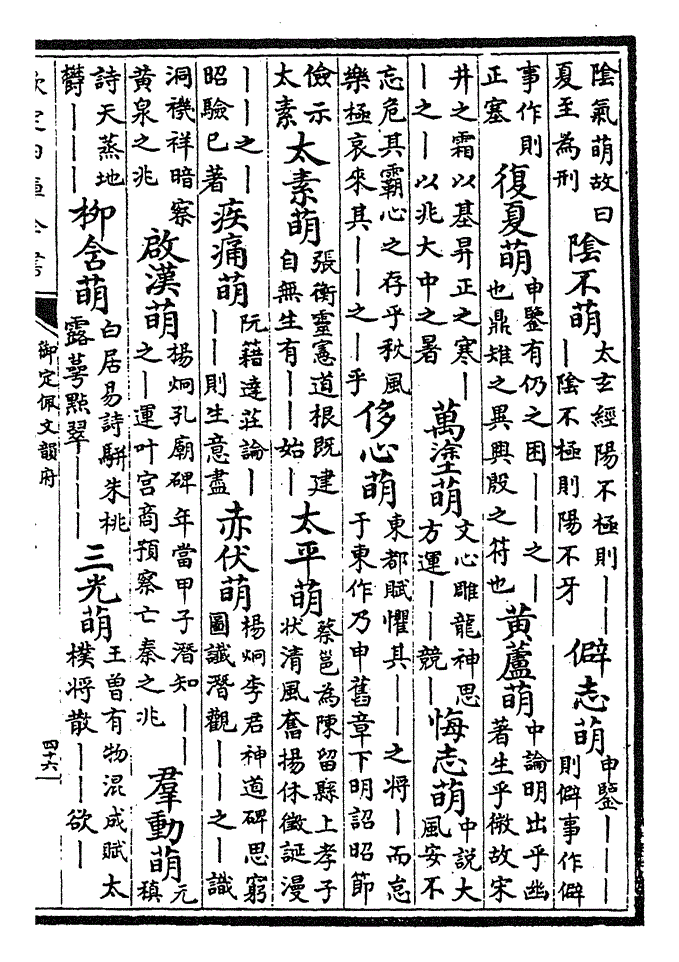 陰氣萌故曰夏至為刑 陰不萌 太玄經陽不極則丨丨丨陰不極則陽不牙 僻志萌 申鑒丨丨丨則僻事作僻
事作則正塞 復夏萌 申鑒有仍之困丨丨之丨也鼎雉之異興殷之符也 黃蘆萌 中論明出乎幽著生乎微故宋
井之霜以基昇正之寒丨丨之丨以兆大中之暑 萬塗萌 文心雕龍神思方運丨丨競丨 悔志萌 中說大風安不
忘危其霸心之存乎秋風樂極哀來其丨丨之丨乎 侈心萌 東都賦懼其丨丨之將丨而怠于東作乃申舊章下明詔昭節
儉示太素 太素萌 張衡靈憲道根既建自無生有丨丨始丨 太平萌 蔡邕為陳留縣上孝子狀清風奮揚休徵誕漫
丨丨之丨昭驗已著 疾痛萌 阮籍達莊論丨丨丨則生意盡 赤伏萌 楊炯李君神道碑思窮圖讖潛觀丨丨之丨識
洞禨祥暗察黃泉之兆 啟漢萌 楊炯孔廟碑年當甲子潛知丨丨之丨運叶宮商預察亡秦之兆 羣動萌 元稹
詩天蒸地鬱丨丨丨 柳含萌 白居易詩駢朱桃露萼點翠丨丨丨 三光萌 王曾有物混成賦太樸將散丨丨欲丨
欽定四庫全書
御定佩文韻府
四十六